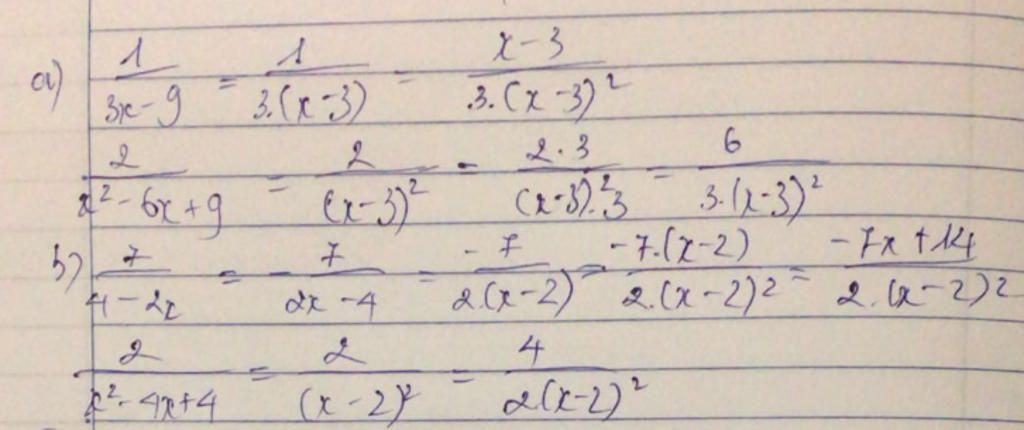 a) 1/(3x-9) = 1/(3.(x-3)) = (x-3)/(3.(x-3)²)
2/(x²-6x+9) = 2/(x-3)² = (2.3)/((x-3)².3) = 6/(3.(x-3)²)
b) 7/(4-2x) = -7/(2x-4) = -7/(2.(x-2)) = (-7.(x-2))/(2.(x-2)²) = (-7x+14)/(2.(x-2)²)
2/(x²-4x+4) = 2/(x-2)² = 4/(2(x-2)²)